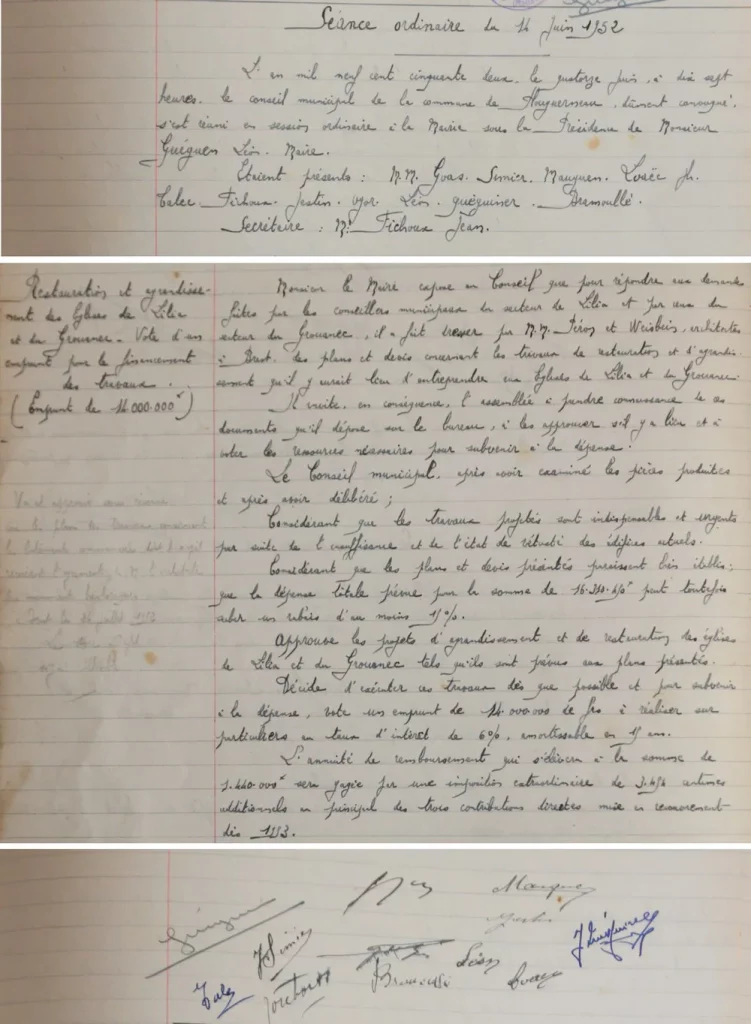 Séance ordinaire du 14 Juin 1952
L'an mil neuf cent cinquante deux, le quatorze juin, à dix sept
heures, le conseil municipal de la commune de Plouguerneau, dûment convoqué,
s'est réuni en session ordinaire à la Mairie sous la Présidence de Monsieur
Guéguen Léon. Maire.
Etaient présents : M.M. Goas. Simier. Mauguen. Loaëc Jh.
Talec. Fichoux. Jestin. Léon. guéguiner. Bramoullé.
Secrétaire : Mr Fichoux Jean.
Restauration et agrandisse-
ment des Eglises de Lilia
et du Grouanec - Vote d'un
emprunt pour le financement
des travaux.
(Emprunt de 14.000.000 f)
Monsieur le Maire expose au Conseil que pour répondre aux demandes
faites par les conseillers municipaux du secteur de Lilia et par ceux du
secteur du Grouanec, il a fait dresser par M.M. et Weisbein, architectes
à Brest, des plans et devis concernant les travaux de restauration et d'agrandis-
sement qu'il y aurait lieu d'entreprendre aux Eglises de Lilia et du Grouanec.
Il invite, en conséquence, l'assemblée à prendre connaissance de ces
documents qu'il dépose sur le bureau, à les approuver s'il y a lieu et à
voter les ressources nécessaires pour subvenir à la dépense.
Le Conseil municipal, après avoir examiné les pièces produites
et après avoir délibéré ;
Considérant que les travaux projetés sont indispensables et urgents
par suite de l'insuffisance et de l'état de vétusté des édifices actuels.
Considérant que les plans et devis présentés paraissent bien établis ;
que la dépense totale prévue pour la somme de peut toutefois
subir un rabais d'au moins 15%.
Approuve les projets d'agrandissement et de restauration des églises
de Lilia et du Grouanec tels qu'ils sont prévus aux plans présentés.
Décide d'exécuter ces travaux dès que possible et pour subvenir
à la dépense, vote un emprunt de 14.000.000 de frs à réaliser sur
particuliers au taux d'intérêt de 6%, amortissable en 15 ans.
L'annuité de remboursement qui s'élèvera à la somme de
1.440.000 f sera gagée par une imposition extraordinaire de centimes
additionnels au principal des trois contributions directes mise en recouvrement
dès 1953.
Vu et approuvé
Brest le juillet 1952
Guéguen
Mauguen
Jestin
J Simier
J Guéguiner
Talec
Fichoux
Bramoullé
Léon
Loaec